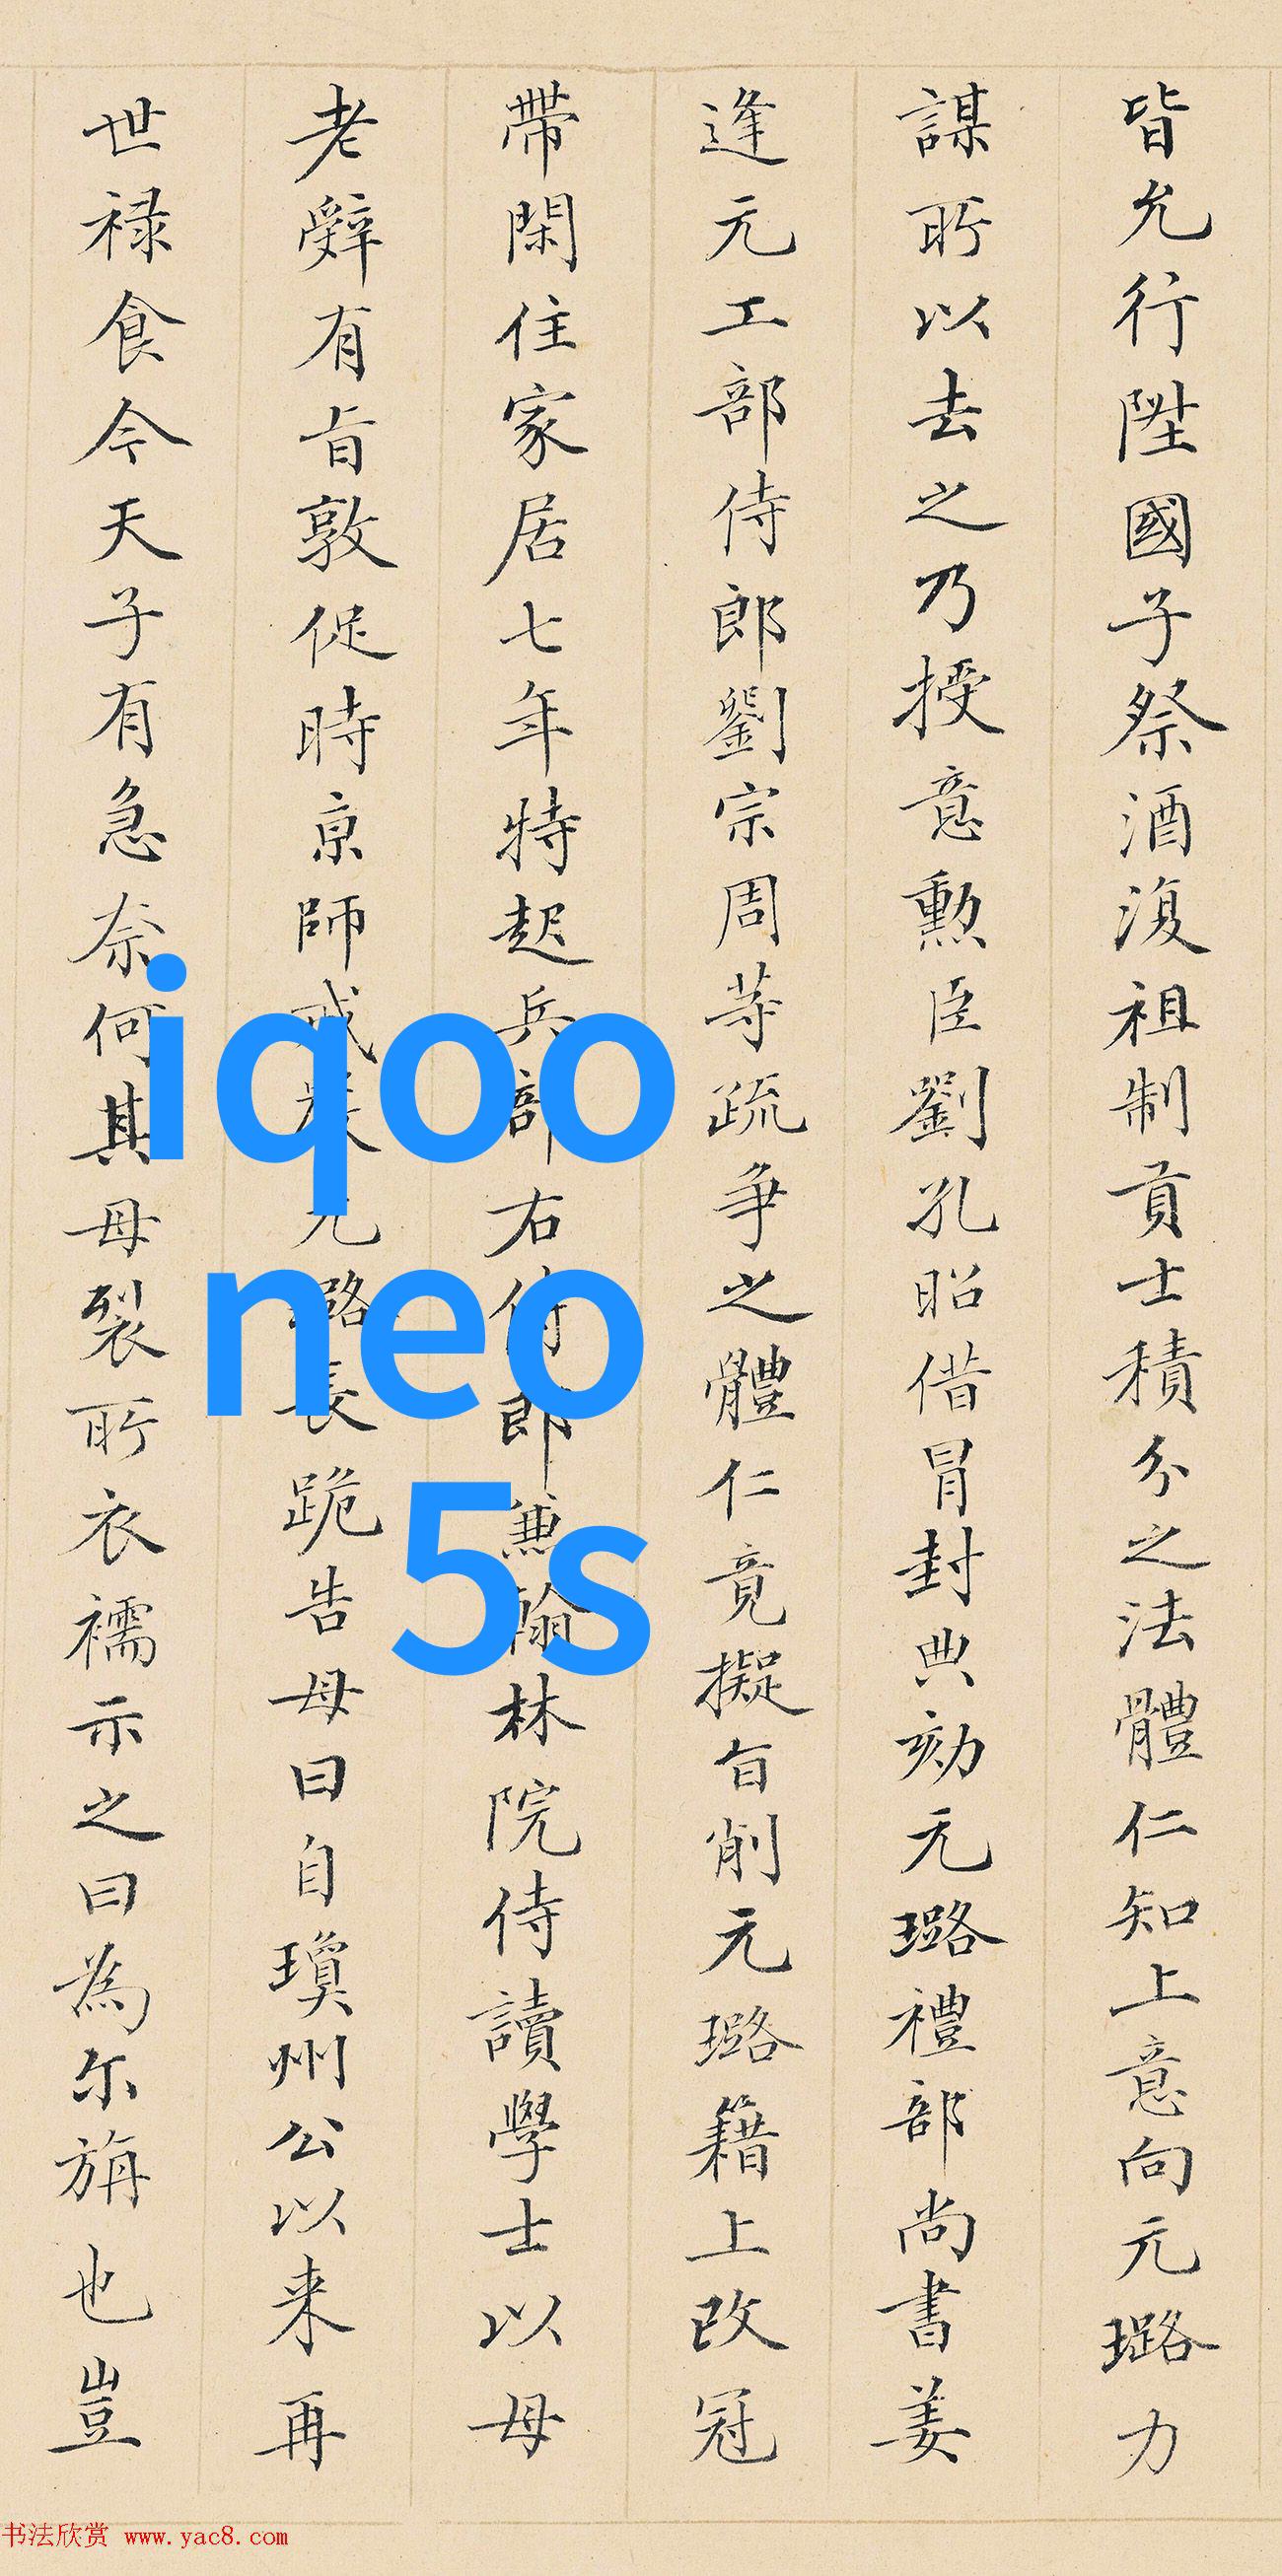 皆允行陞國子祭酒復祖制貢士積分之法體仁知上意向元璐力
謀所以去之乃授意勲臣劉孔昭借冒封典劾元璐禮部尚書姜
逢元工部侍郎劉宗周等疏争之體仁竟擬旨削元璐籍上改冠
帶閑住家居七年特起兵部右侍郎兼翰林院侍讀學士以母
老辭有旨敦促時京師戒嚴元璐長跪告母曰自瓊州公以来再
世禄食今天子有急奈何其母裂所衣襦示之曰為尔旃也豈
iqoo
neo
5s
书法欣赏 www.yac8.com